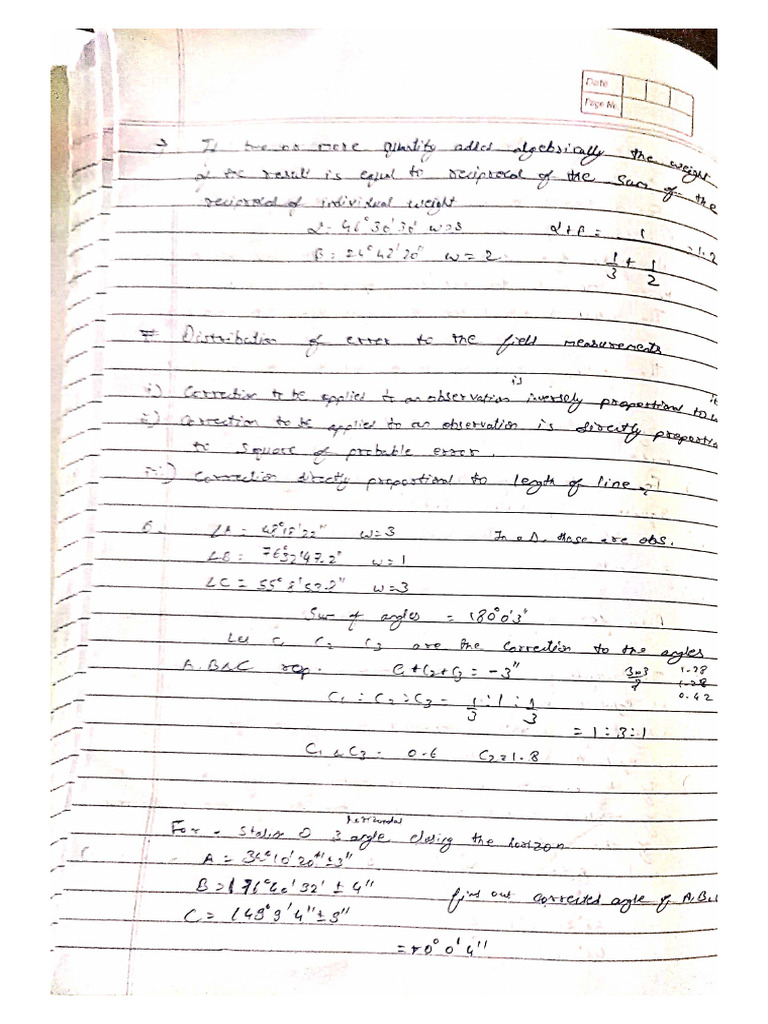 Date
Page No.
→ If two or more quantity added algebrically the weight
of the result is equal to reciprocal of the sum of the
reciprocal of individual weight
α = 46°30'30" w=3 α+β = 1 = 1.2
β = 24°42'20" w = 2 1/3 + 1/2
# Distribution of error to the field measurements
i) Correction to be applied to an observation is inversely proportional to
ii) Correction to be applied to an observation is directly proportio
to square of probable error.
iii) Correction directly proportional to length of line
∠A = 48°18'22" w=3 In a Δ, these are obs.
∠B = 76°32'47.2" w=1
∠C = 55°8'53.8" w=3
Sum of angles = 180°0'3"
Let C1 C2 C3 are the correction to the angles
A, B & C resp. C1+C2+C3 = -3" 1.28
1.28
0.42
C1 : C2 : C3 = 1/3 : 1 : 1/3
= 1 : 3 : 1
C1 & C3 = 0.6 C2 = 1.8
horizontal
For a station O 3 angle closing the horizon
A = 10'20" ± 3"
B = 176°40'32' ± 4" find out corrected angle of A, B
C = 149°9'4" ± 3"
0' 4"